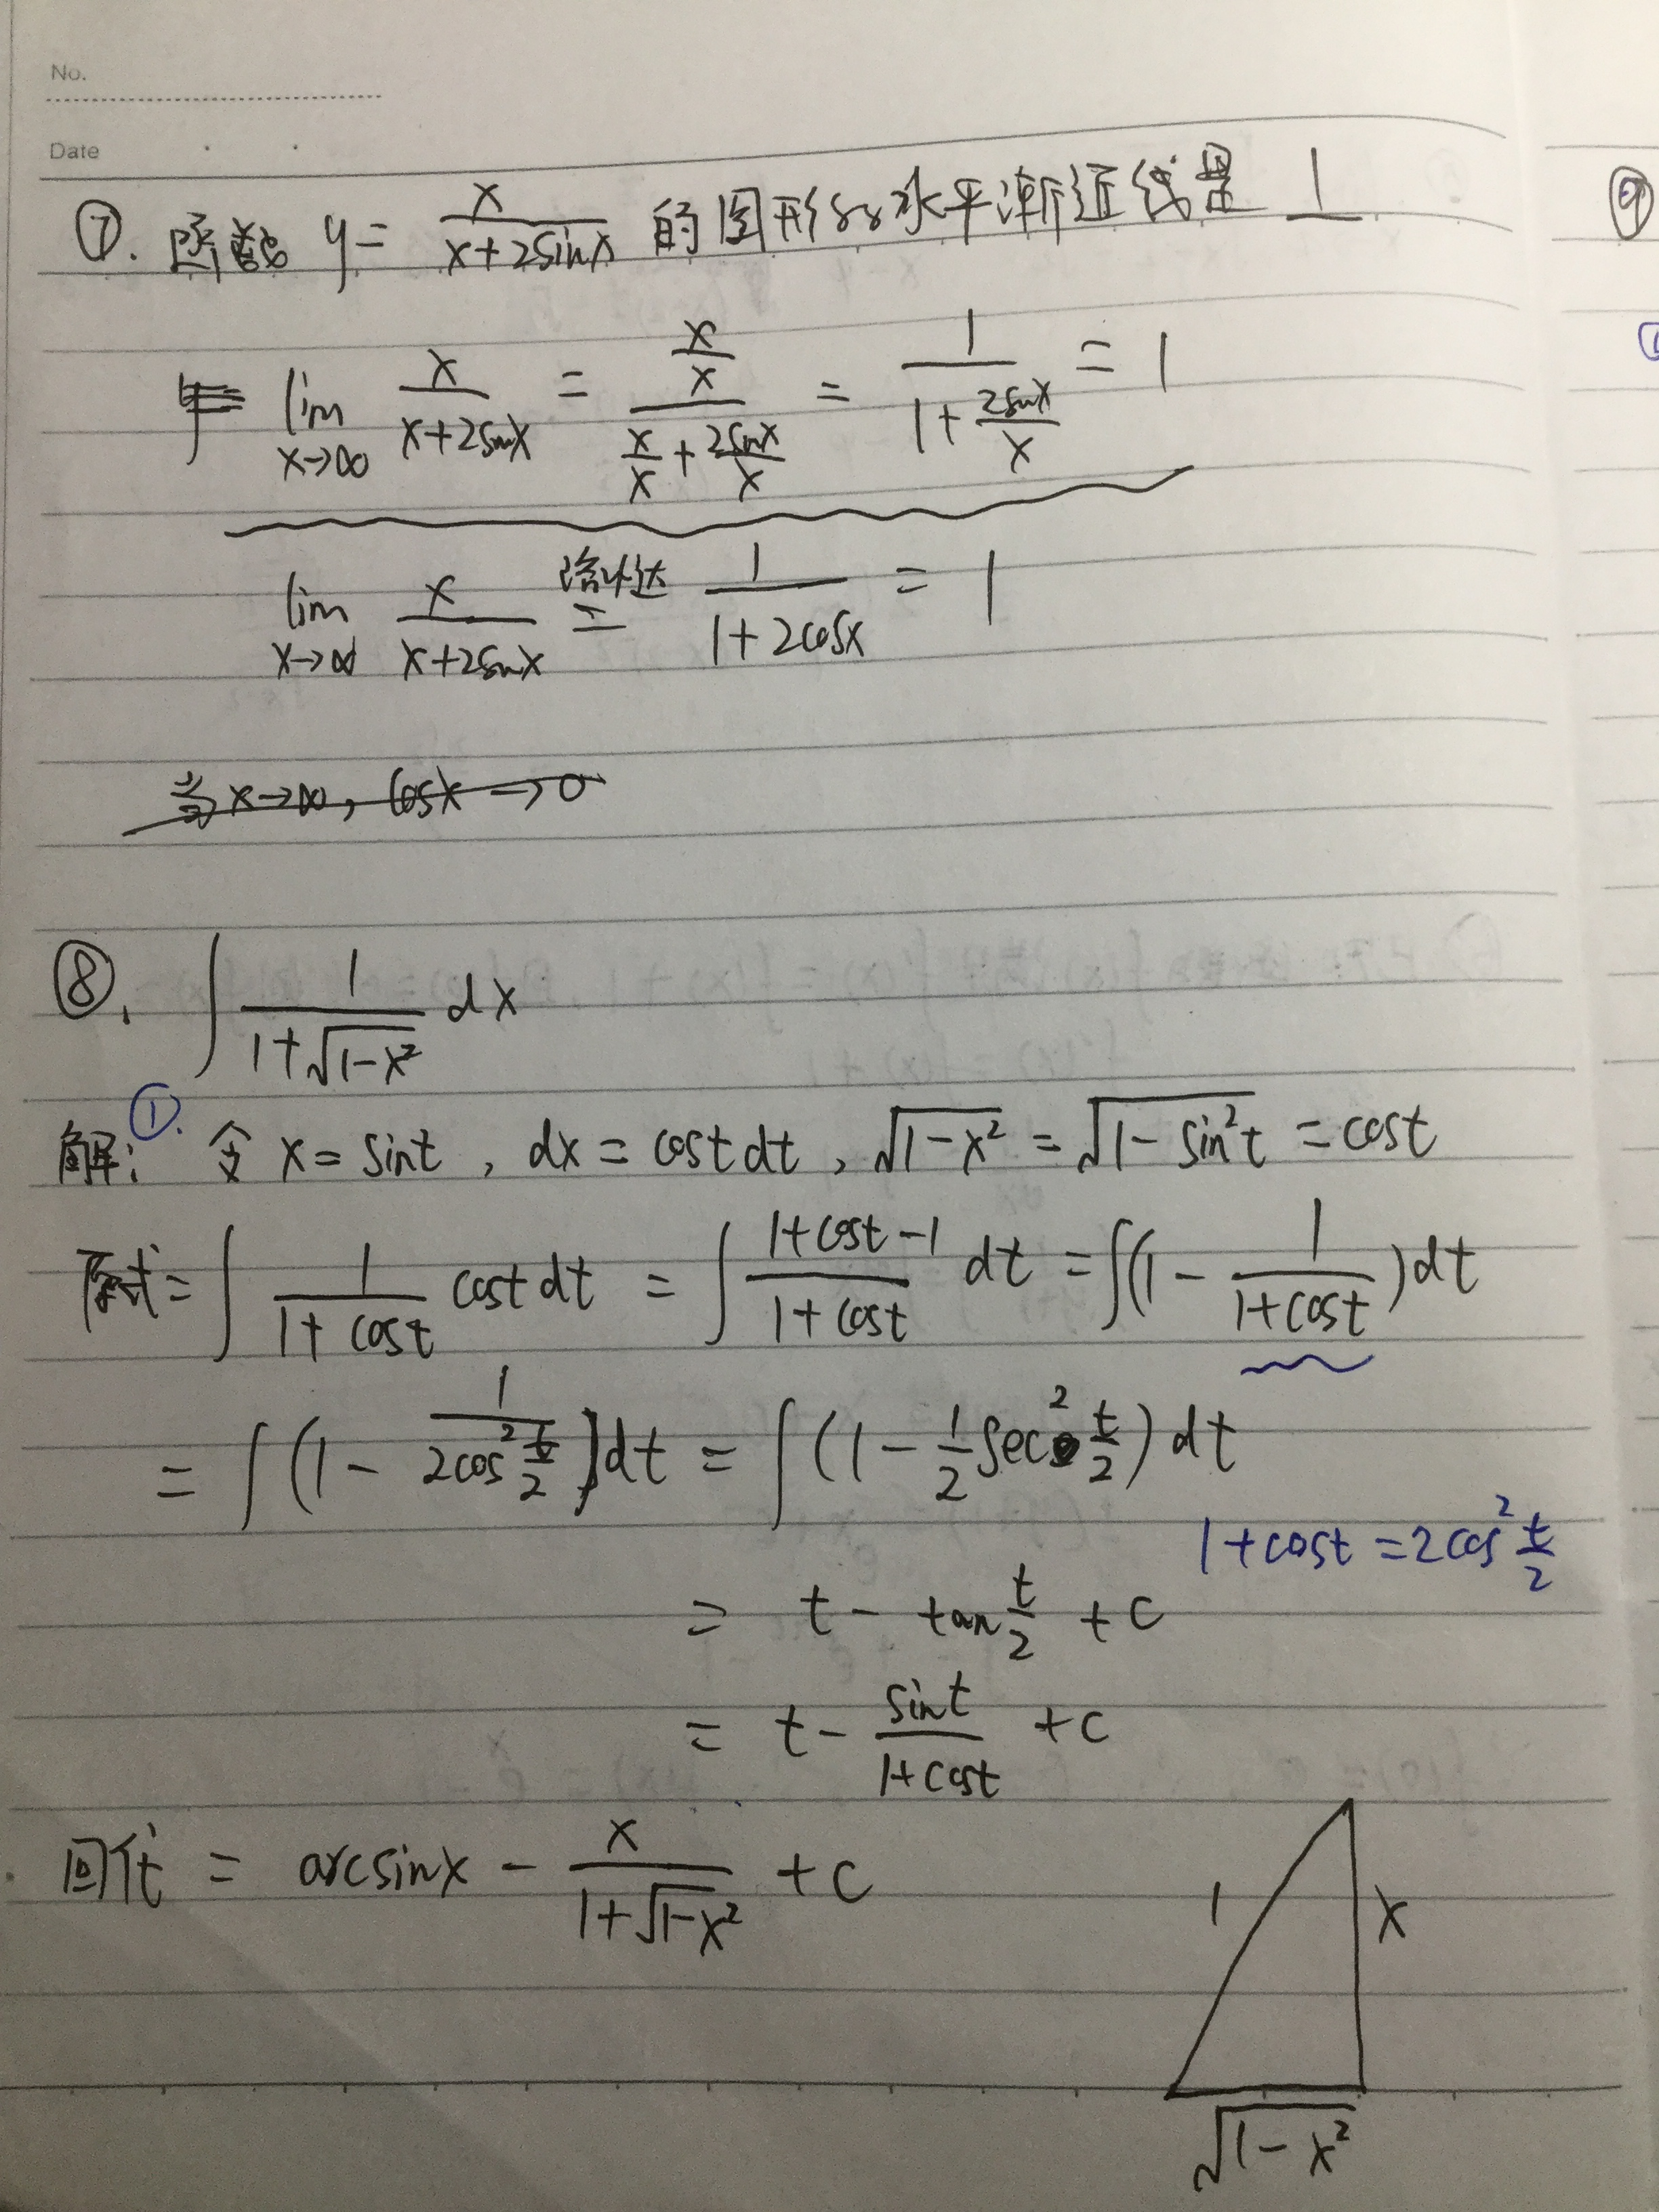 No.
Date
⑦. 函数 y = x/(x+2sinx) 的图形的水平渐近线是 1
lim x→∞ x/(x+2sinx) = (x/x)/(x/x + 2sinx/x) = 1/(1+ 2sinx/x) = 1
lim x→∞ x/(x+2sinx) 洛必达 = 1/(1+2cosx) = 1
当x→∞, cosx →0
⑧. ∫ 1/(1+√(1-x²)) dx
解: ①. 令 x = sint , dx = costdt , √(1-x²) = √(1-sin²t) = cost
原式 = ∫ 1/(1+cost) costdt = ∫ (1+cost-1)/(1+cost) dt = ∫(1 - 1/(1+cost))dt
= ∫ (1 - 1/(2cos² t/2))dt = ∫ (1 - 1/2 sec² t/2) dt
1+cost = 2cos² t/2
= t - tan t/2 + c
= t - sint/(1+cost) + c
回代 = arcsinx - x/(1+√(1-x²)) + c
1
x
√(1-x²)
⑨